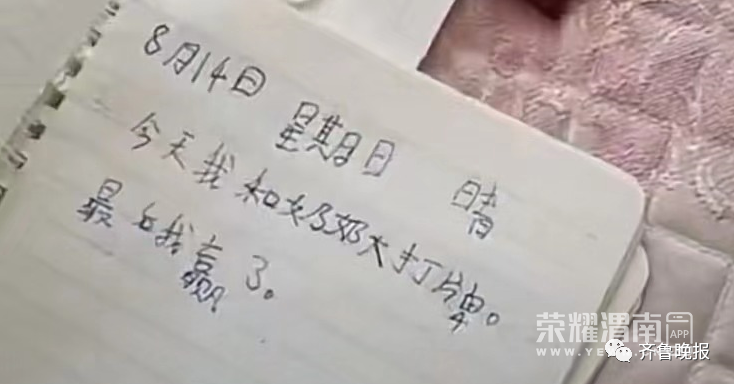 8月14日 星期日 晴
今天我和奶奶大打牌。
最后我赢了。
荣耀渭南APP
齐鲁晚报